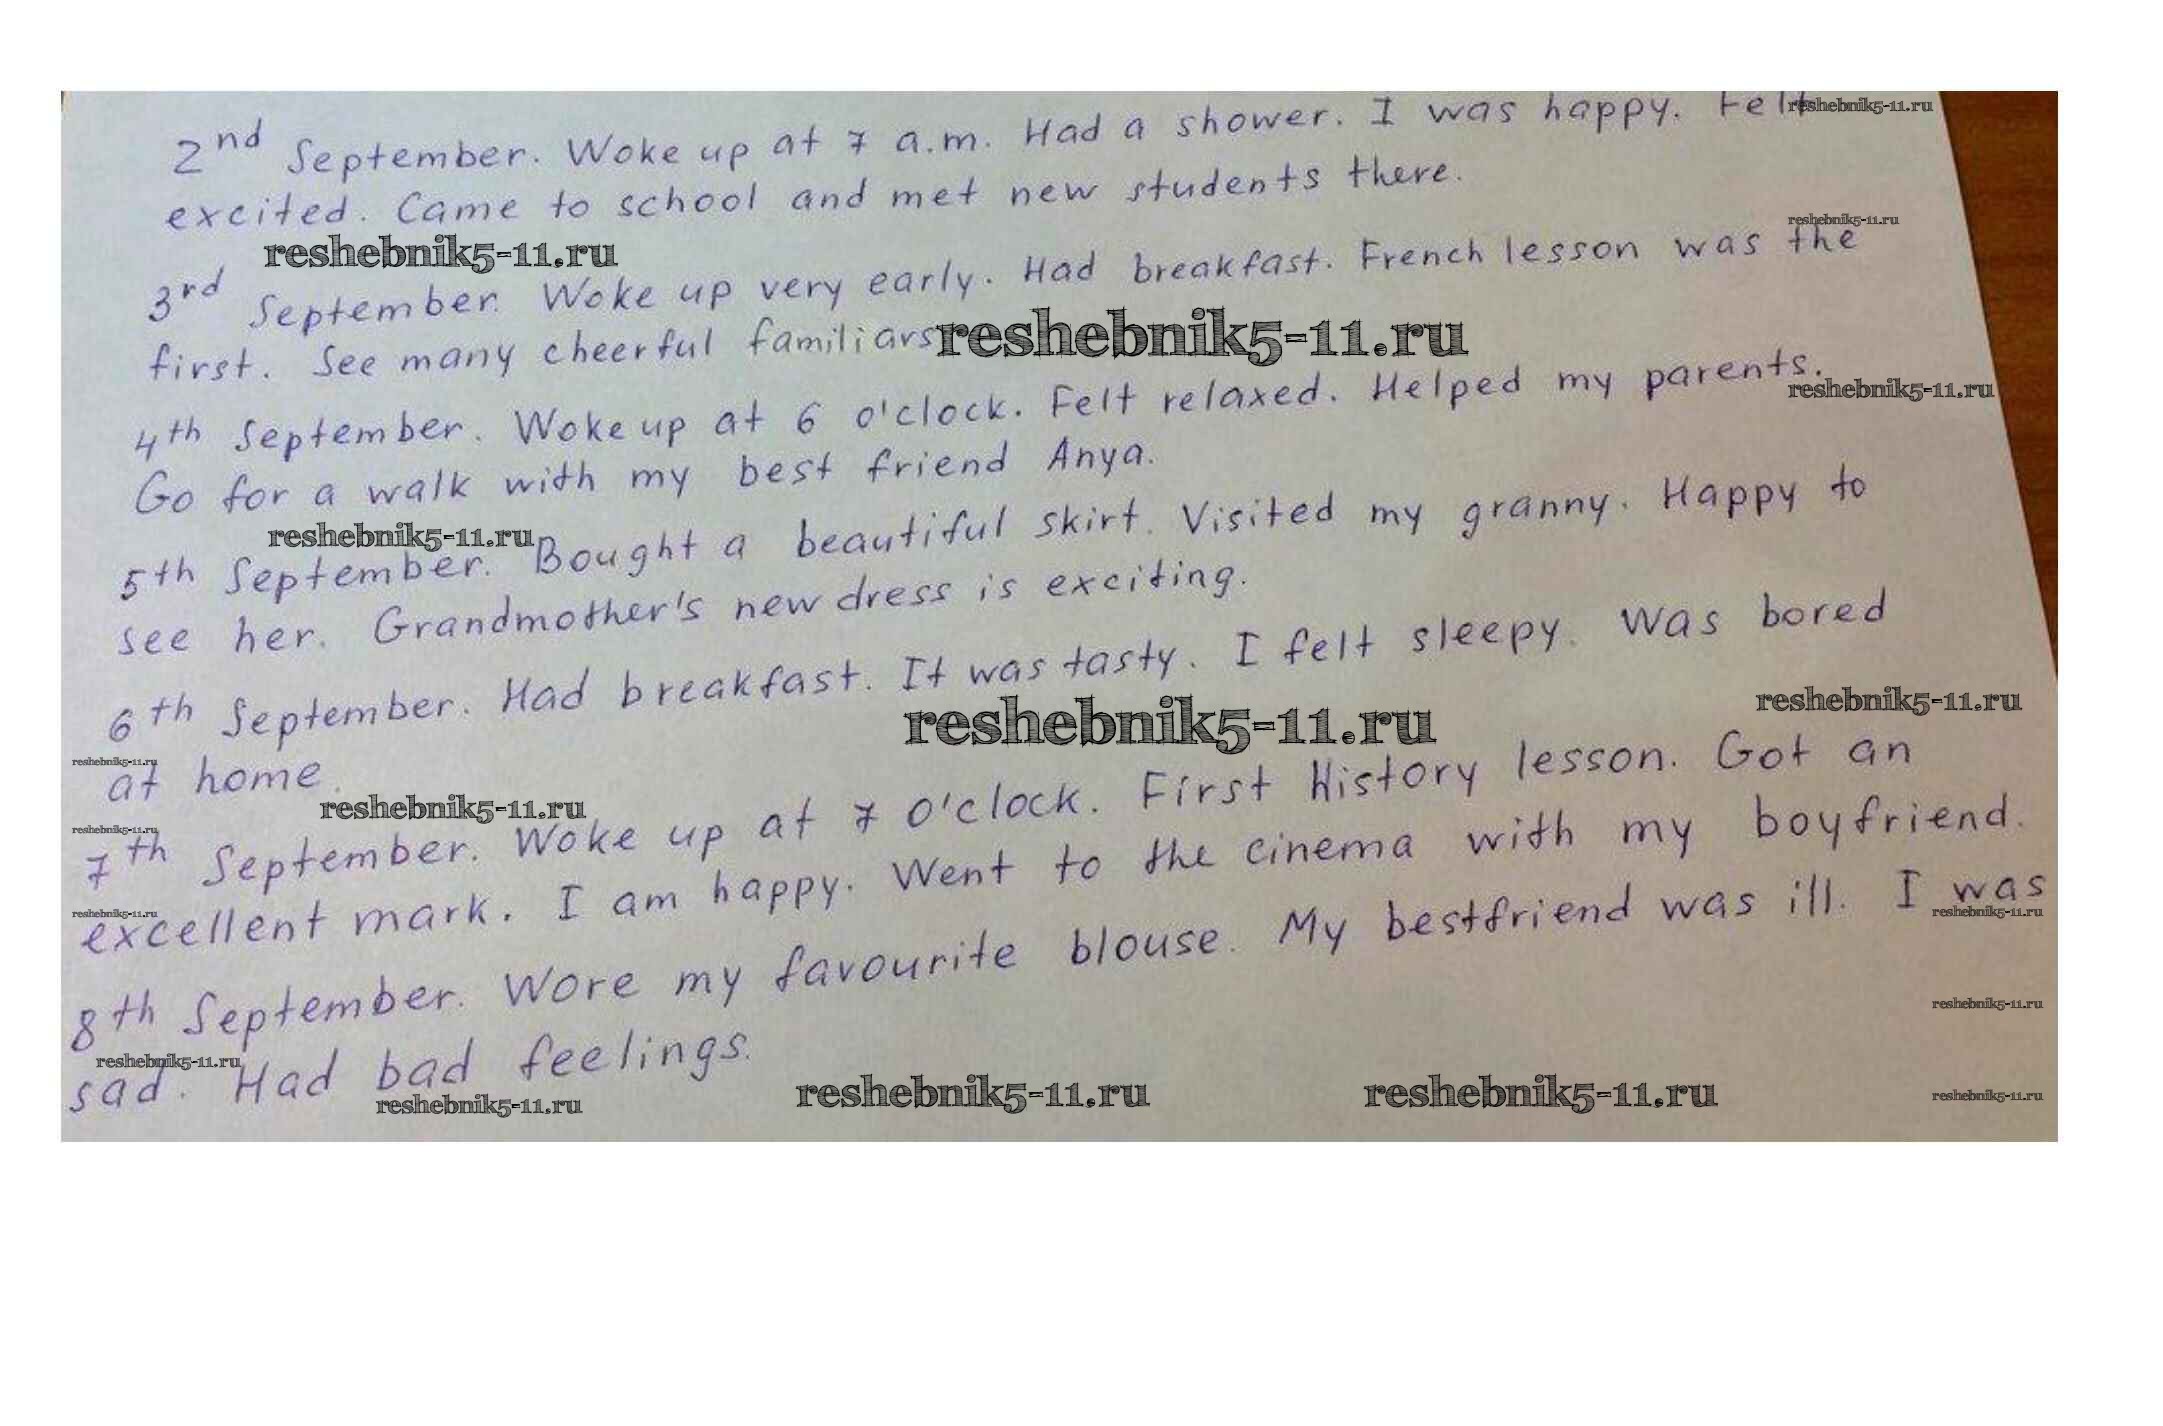 2nd September. Woke up at 7 a.m. Had a shower. I was happy. Felt
reshebnik5-11.ru
excited. Came to school and met new students there.
reshebnik5-11.ru
reshebnik5-11.ru
3rd September. Woke up very early. Had breakfast. French lesson was the
first. See many cheerful familiars
reshebnik5-11.ru
4th September. Woke up at 6 o'clock. Felt relaxed. Helped my parents.
reshebnik5-11.ru
Go for a walk with my best friend Anya.
reshebnik5-11.ru
5th September. Bought a beautiful skirt. Visited my granny. Happy to
see her. Grandmother's new dress is exciting.
6th September. Had breakfast. It was tasty. I felt sleepy. Was bored
reshebnik5-11.ru
reshebnik5-11.ru
reshebnik5-11.ru
at home.
reshebnik5-11.ru
reshebnik5-11.ru
7th September. Woke up at 7 o'clock. First History lesson. Got an
excellent mark. I am happy. Went to the cinema with my boyfriend.
reshebnik5-11.ru
reshebnik5-11.ru
8th September. Wore my favourite blouse. My bestfriend was ill. I was
reshebnik5-11.ru
reshebnik5-11.ru
sad. Had bad feelings.
reshebnik5-11.ru
reshebnik5-11.ru
reshebnik5-11.ru
reshebnik5-11.ru